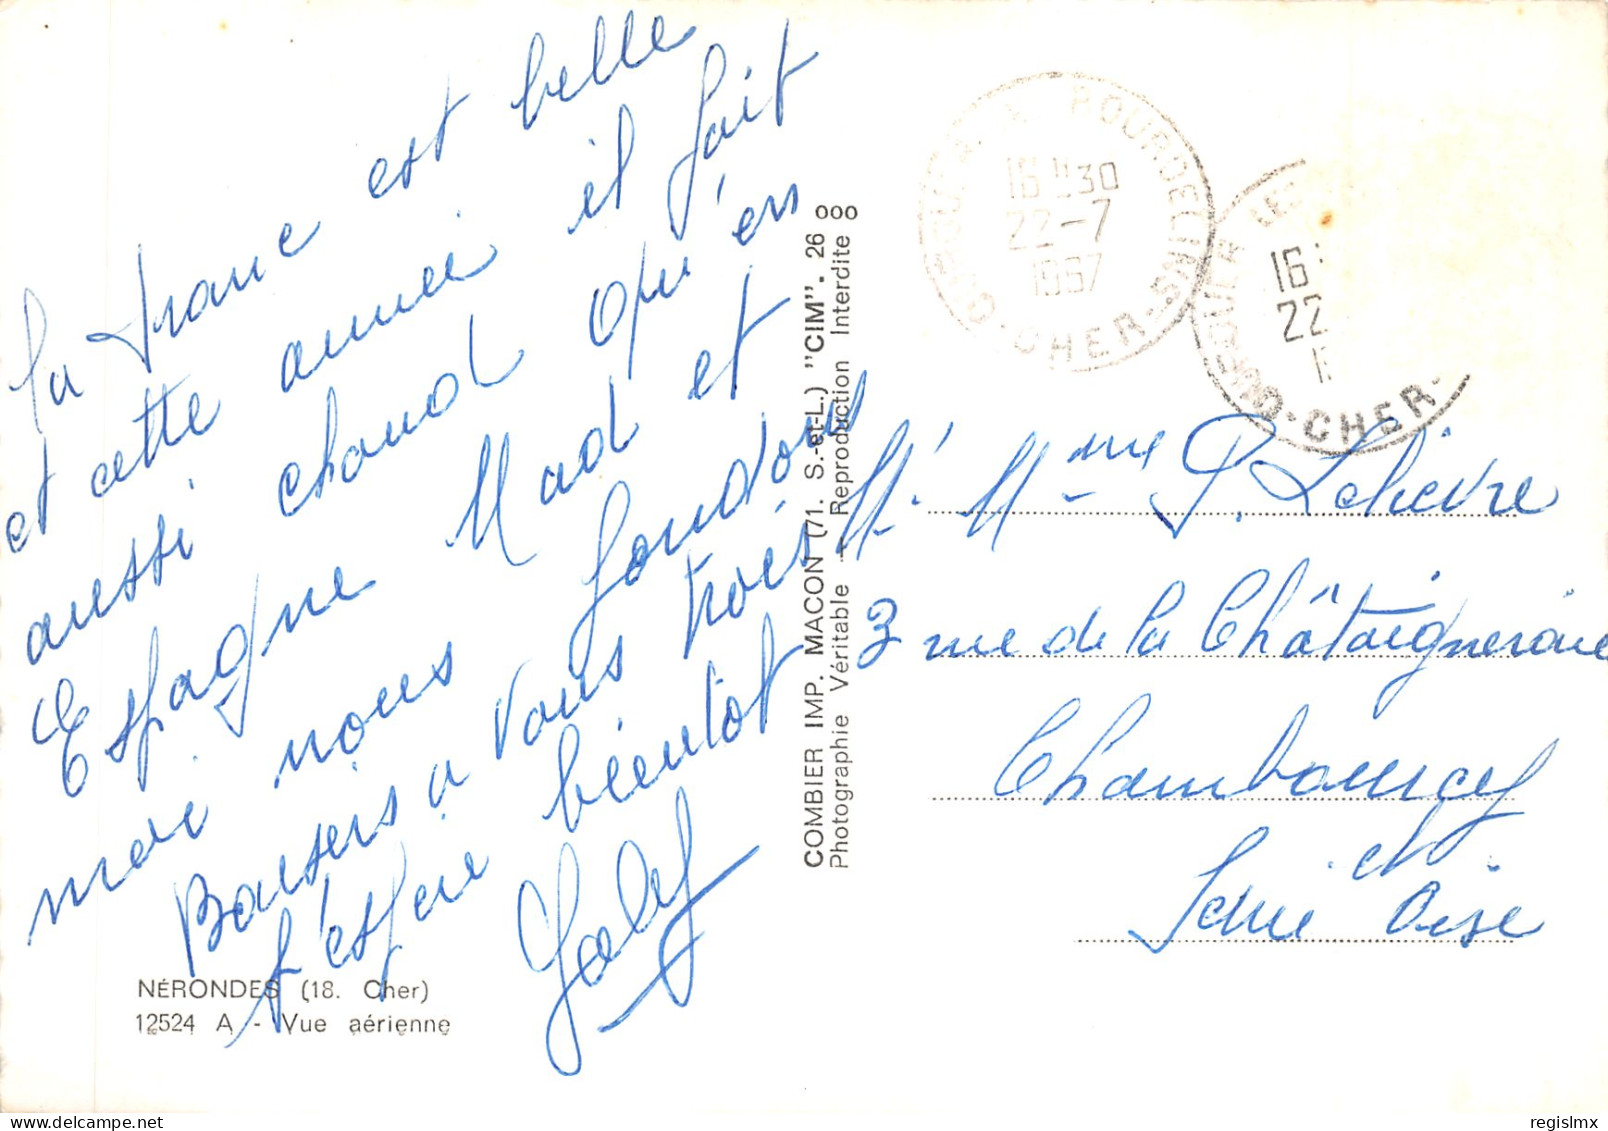 la france est belle
et cette année il fait
aussi chaud qu'en
Espagne Mad et
moi nous
Baisers a vous trois
J'espère bientot
NÉRONDES (18. Cher)
12524 A - Vue aérienne
COMBIER IMP. MACON (71. S.-et-L.) "CIM". 26 000
Photographie Véritable - Reproduction Interdite
16 H30
22-7
1967
CHER
LES BOURDELINS
16
22
1
LES
CHER
M. Mme P. Lelievre
3 rue de la Châtaigneraie
Chambourcy
Seine et Oise
regislmx